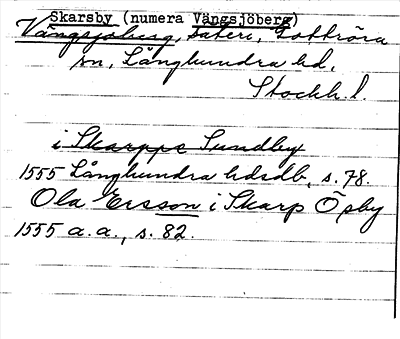 Skarsby (numera Vängsjöberg)
Vängsjöberg, säteri, Gottröra
sn, Långhundra hd,
Stockh. l.
i Skarpps Sundby
1555 Långhundra hdsdb, s. 78.
Ola Ersson i Skarp Öpby
1555 a.a., s. 82.